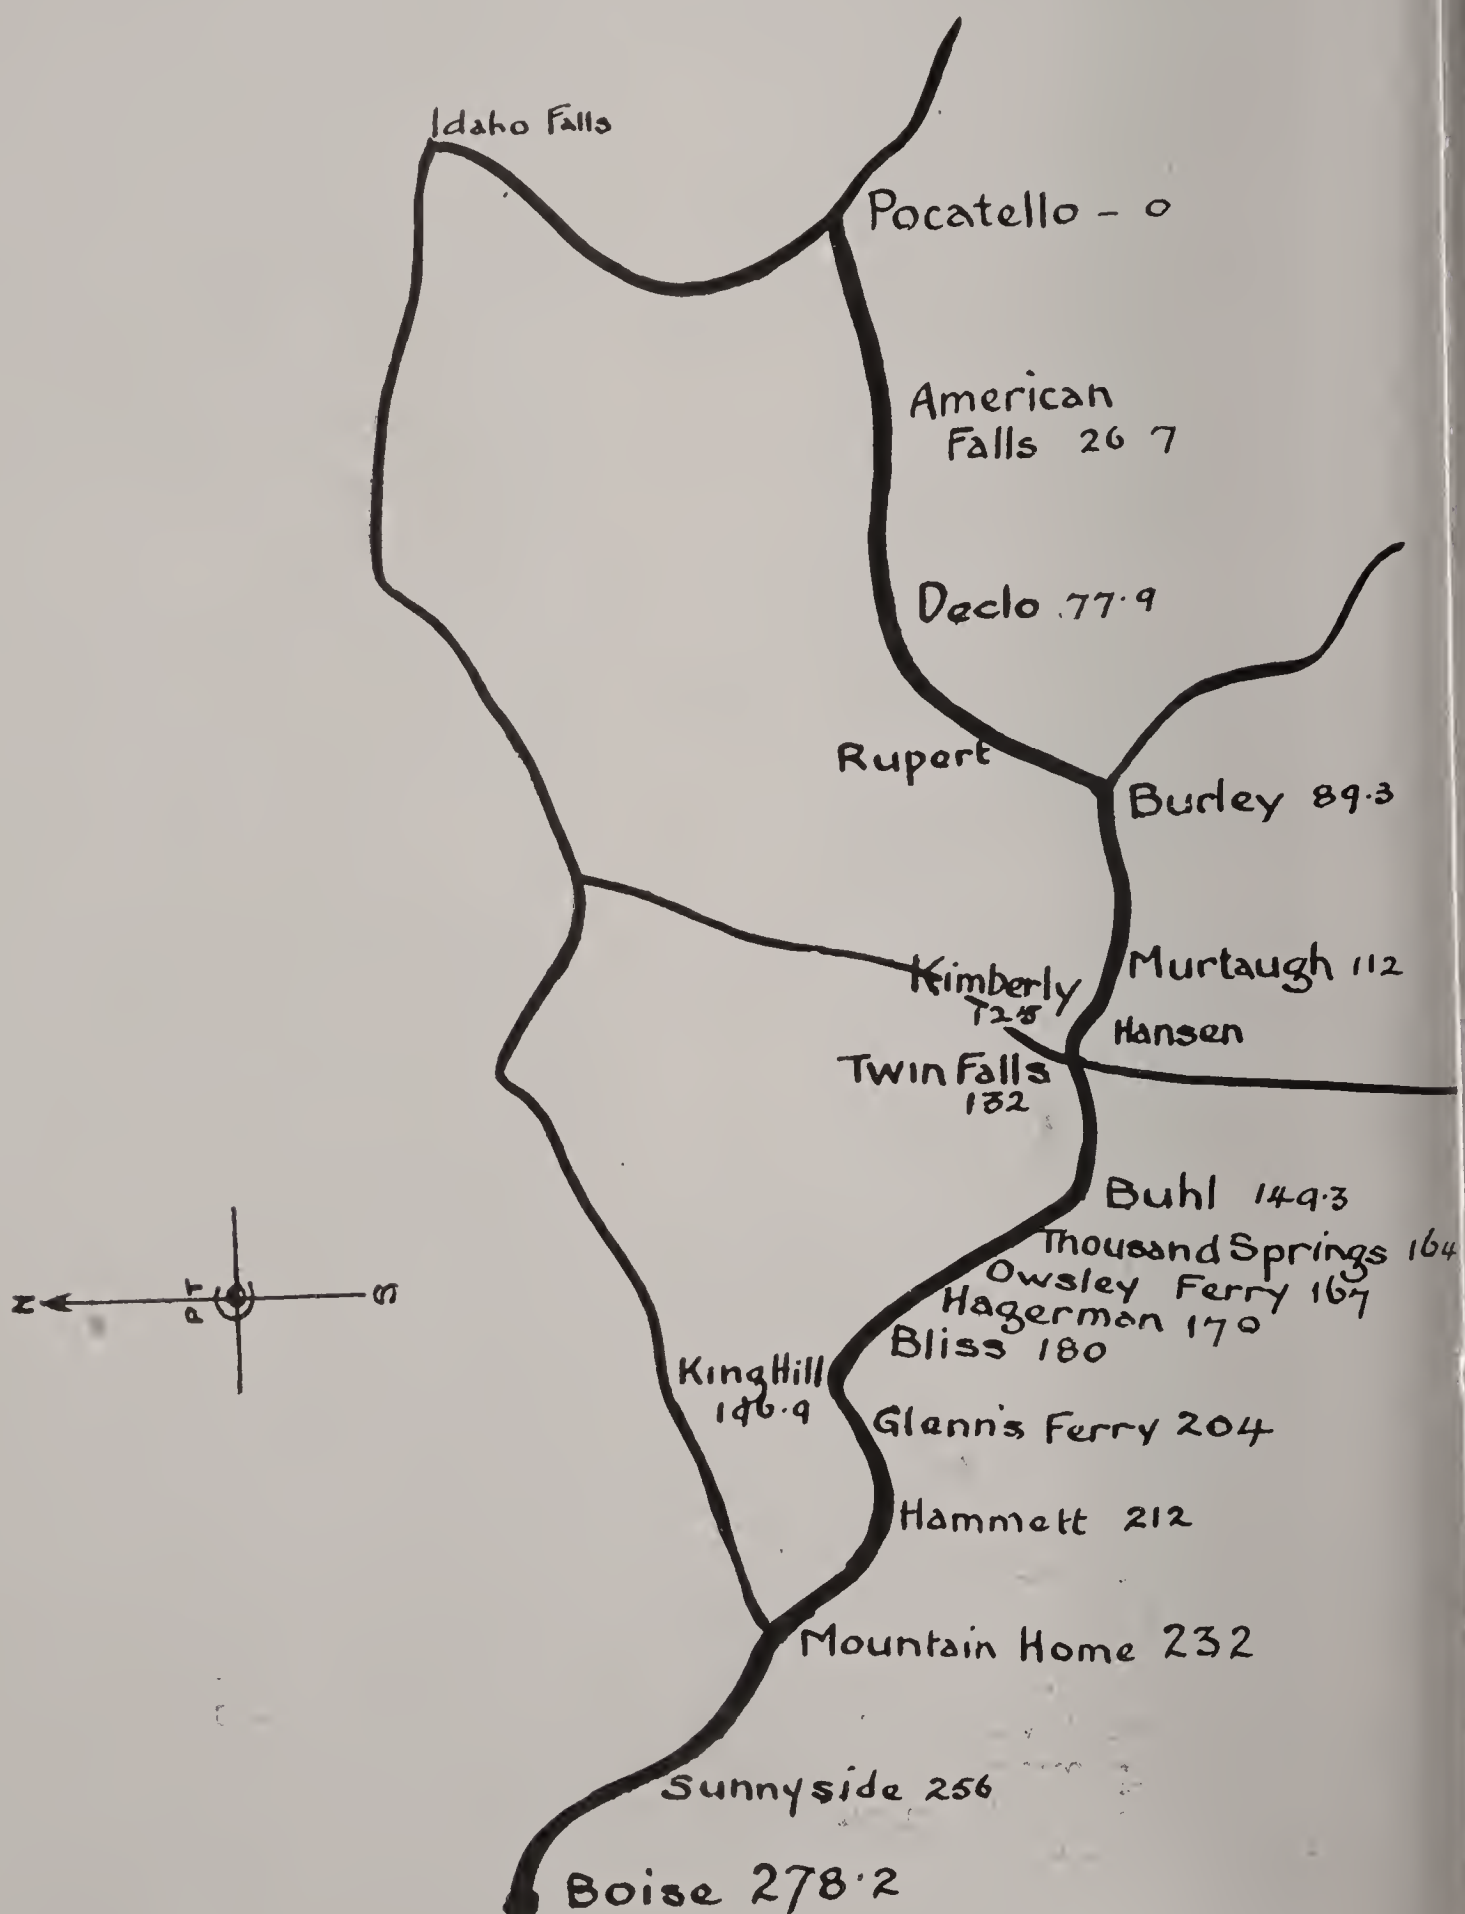 Idaho Falls
Pocatello - 0
American
Falls 26 7
Declo 77.9
Rupert
Burley 89.3
Murtaugh 112
Kimberly
125
Hansen
Twin Falls
132
Buhl 149.3
Thousand Springs 164
Owsley Ferry 167
Hagerman 170
Bliss 180
N
S
King Hill
196.9
Glenn's Ferry 204
Hammett 212
Mountain Home 232
Sunnyside 256
Boise 278.2